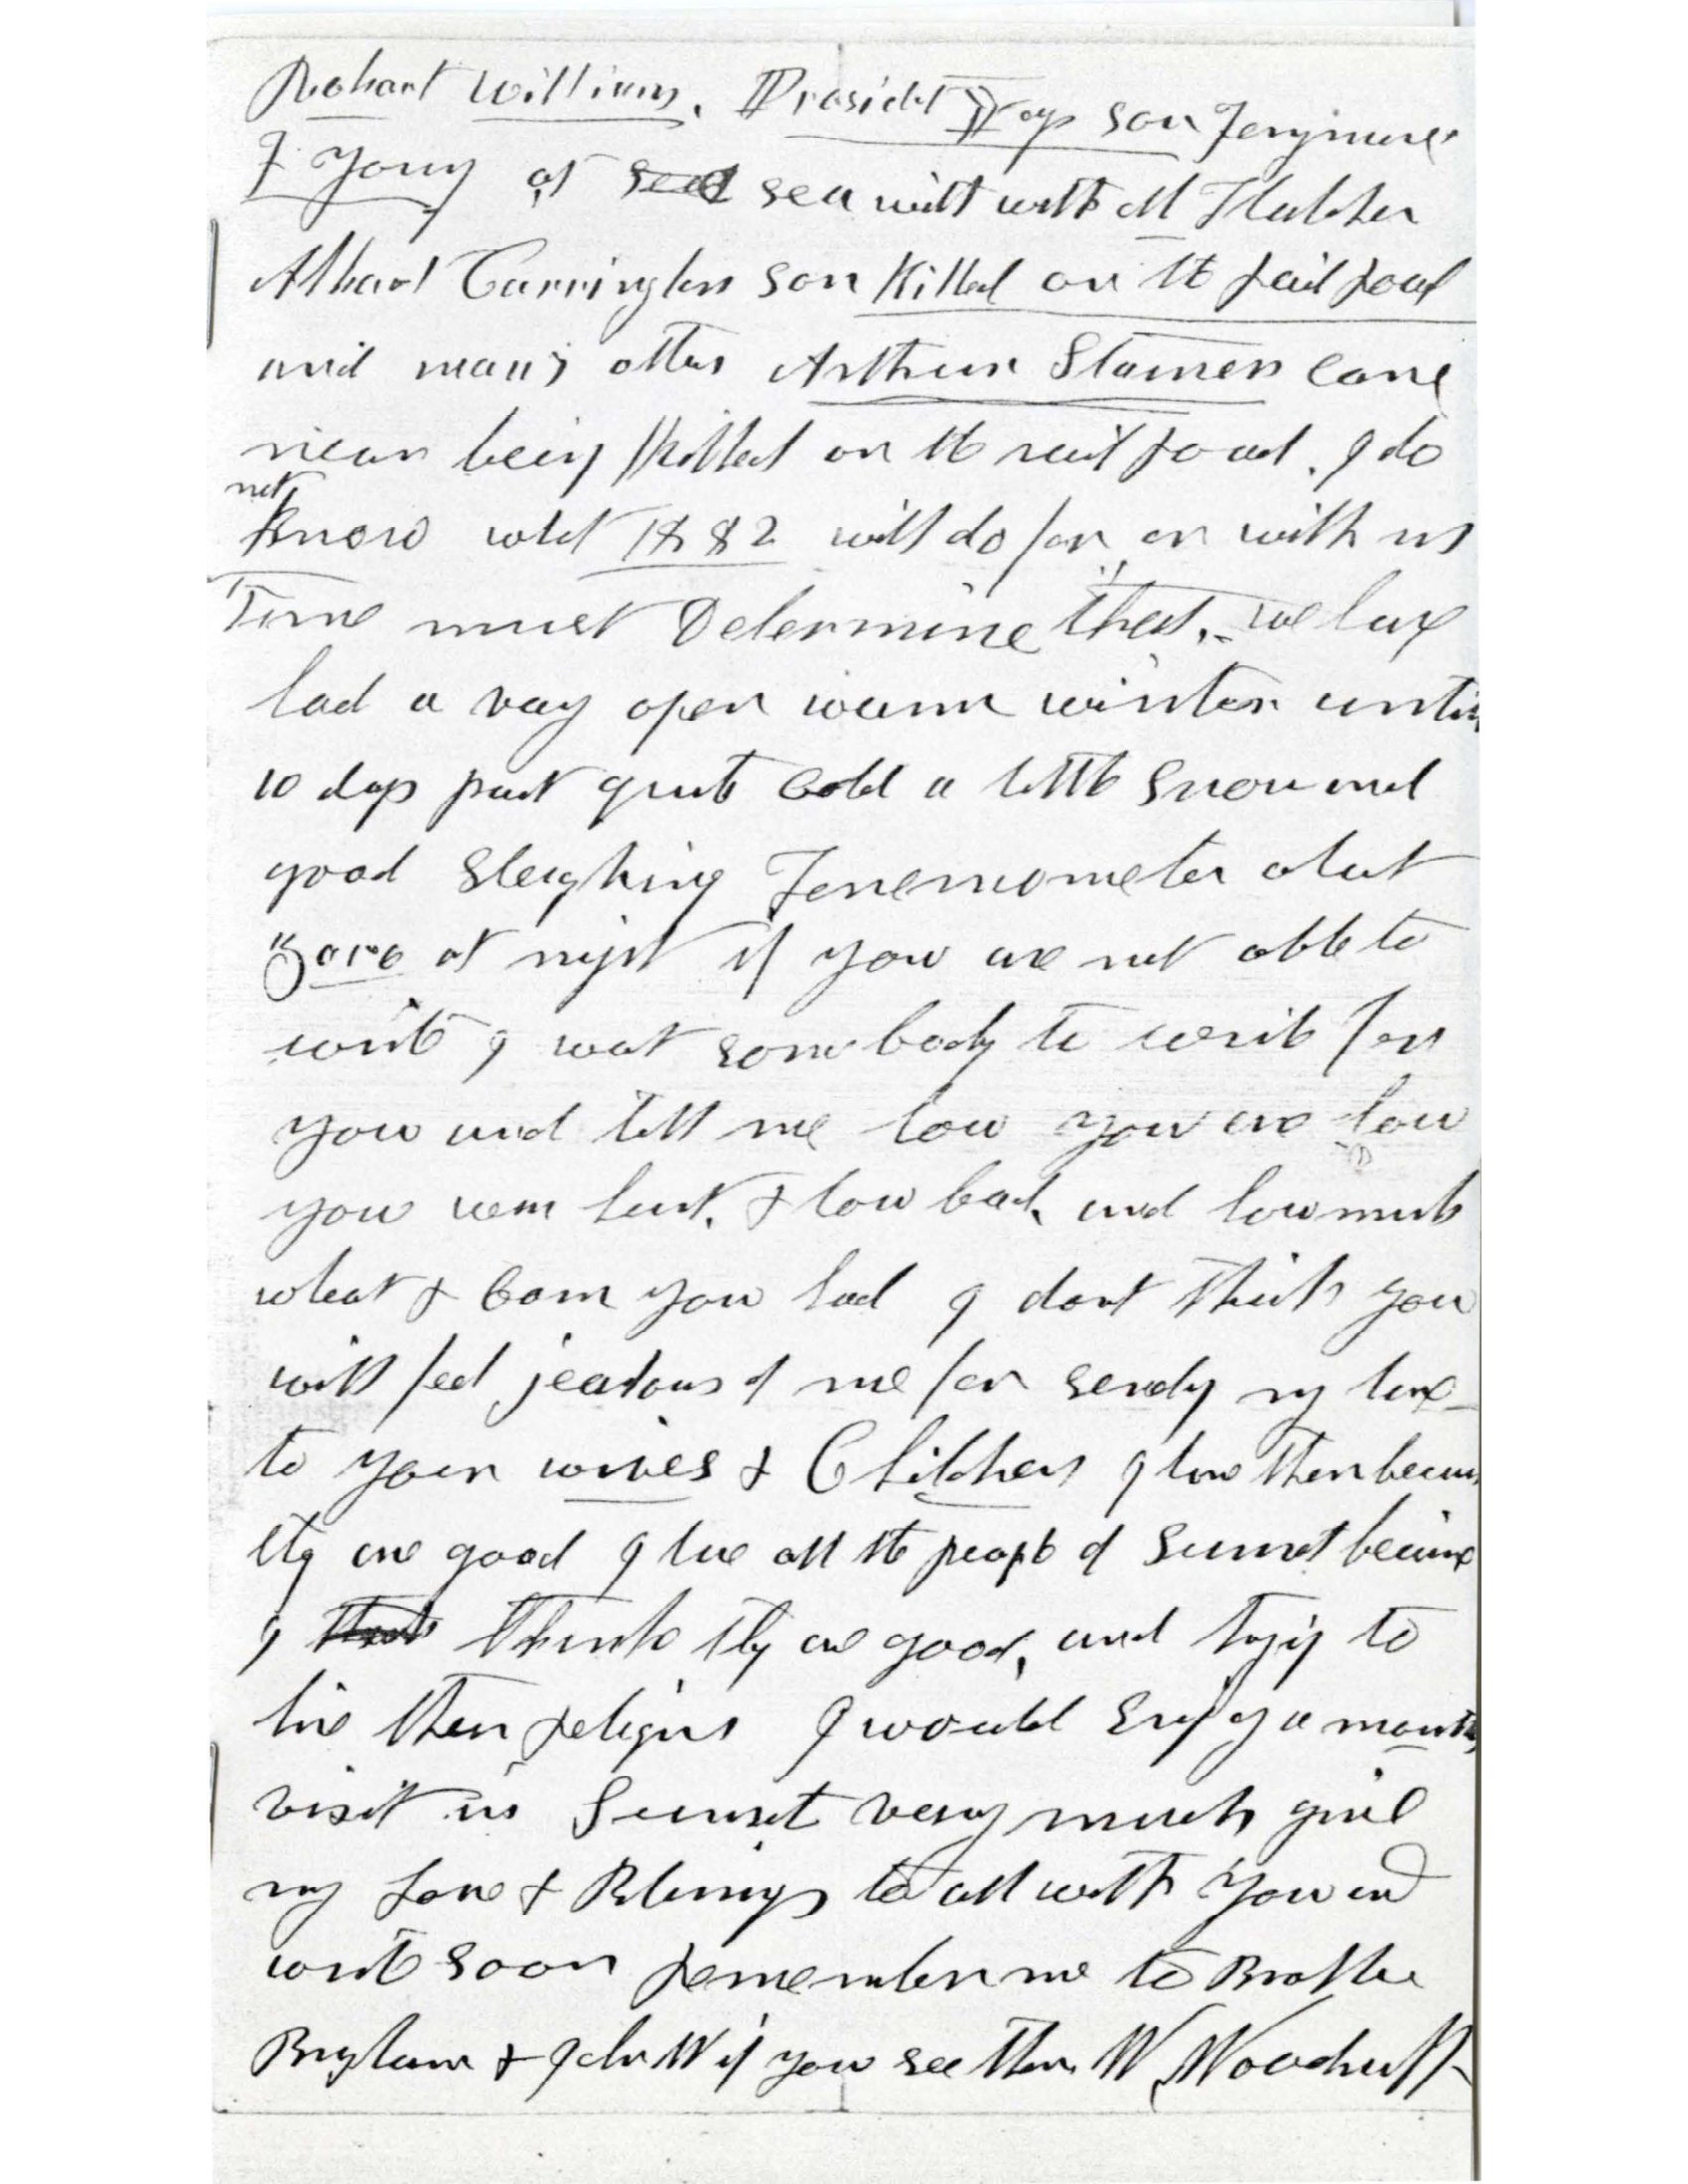 Robart Williams. President Days son Feryimore
F Young at <s>sea</s> sea with with M Thatcher
Albart Carrington son Killed on the rail road
and many others Arthur Stainer came
near being Killed on the rail road. I do
not
Know what 1882 will do for or with us
Time must Determine that. we have
had a vary open warm winter untill
10 days past quite Cold a little snow and
good Sleighing Feremometer about
Zaro at night if you are not able to
write I want somebody to write for
you and tell me how you are how
you wem hurt. & how bad, and how much
wheat & Corn you had I dont think you
will feel jealous of me for sendig my love
to your wives & Children I love them because
they are good I love all the people of Sunset because
I <s>think</s> think they are good, and tryig to
live their religion I would Enjoy a months
visit in Sunset very much give
my Love & Blesings to all with you and
write soon remember me to Brother
Brigham & John W if you see them W, Woodruff